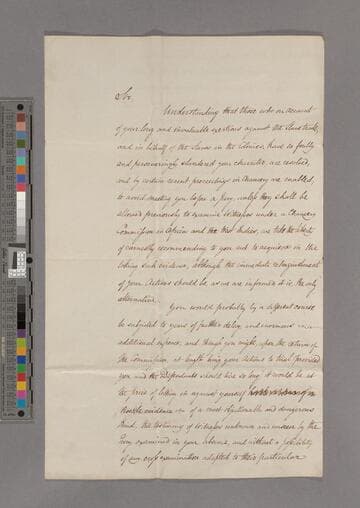 Sir,
Understanding that those who on account
of your long and invaluable exertions against the Slave trade,
and in behalf of the Slaves in the Colonies, have so foully
and perseveringly slandered your character, are resolved,
and by certain recent proceedings in Chancery are enabled,
to avoid meeting you before a Jury, unless they shall be
allowed previously to examine witnesses under a Chancery
Commission in Africa and the West Indies, we take the liberty
of earnestly recommending to you not to acquiesce in the
taking such evidence, although the immediate relinquishment
of your Actions should be, as we are informed it is, the only
alternative.
You would probably by a different course
be subjected to years of further delay and enormous
additional expence; and though you might, upon the return of
the Commission, at length bring your Actions to trial provided
you and the Defendants should live so long it would be at
the price of letting in against yourself
evidence of a most objectionable and dangerous
kind, the testimony of witnesses unknown and unseen by the
Jury examined in your absence, and without a possibility
of any cross examination adapted to their particular